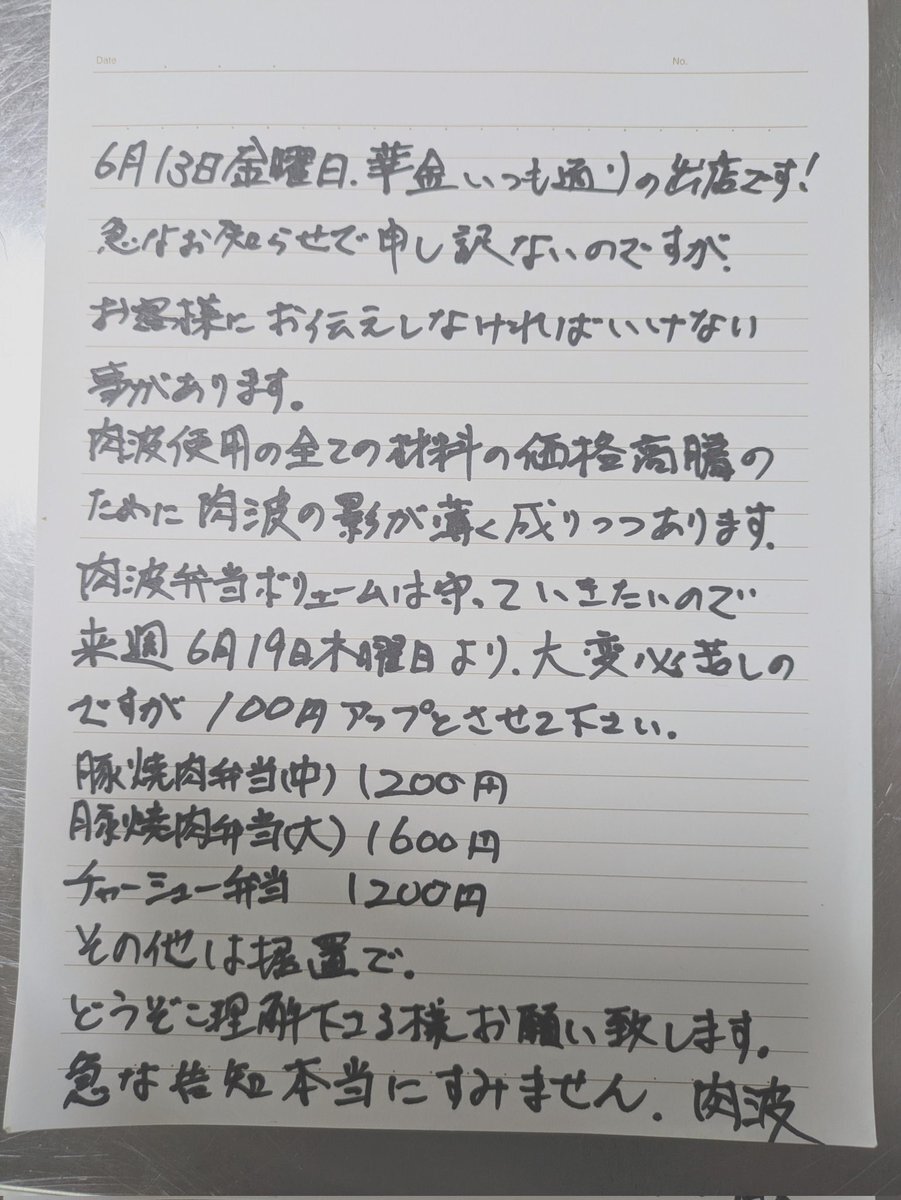 Date
No.
6月13日金曜日.華金いつも通りの出店です!
急なお知らせで申し訳ないのですが、
お客様にお伝えしなければいけない
事があります。
肉波使用の全ての材料の価格高騰の
ために肉波の影が薄く成りつつあります。
肉波弁当ボリュームは守っていきたいので
来週6月19日木曜日より、大変心苦しの
ですが100円アップとさせて下さい。
豚焼肉弁当(中)1200円
豚焼肉弁当(大)1600円
チャーシュー弁当 1200円
その他は据置で。
どうぞご理解下さる様お願い致します。
急な告知本当にすみません. 肉波